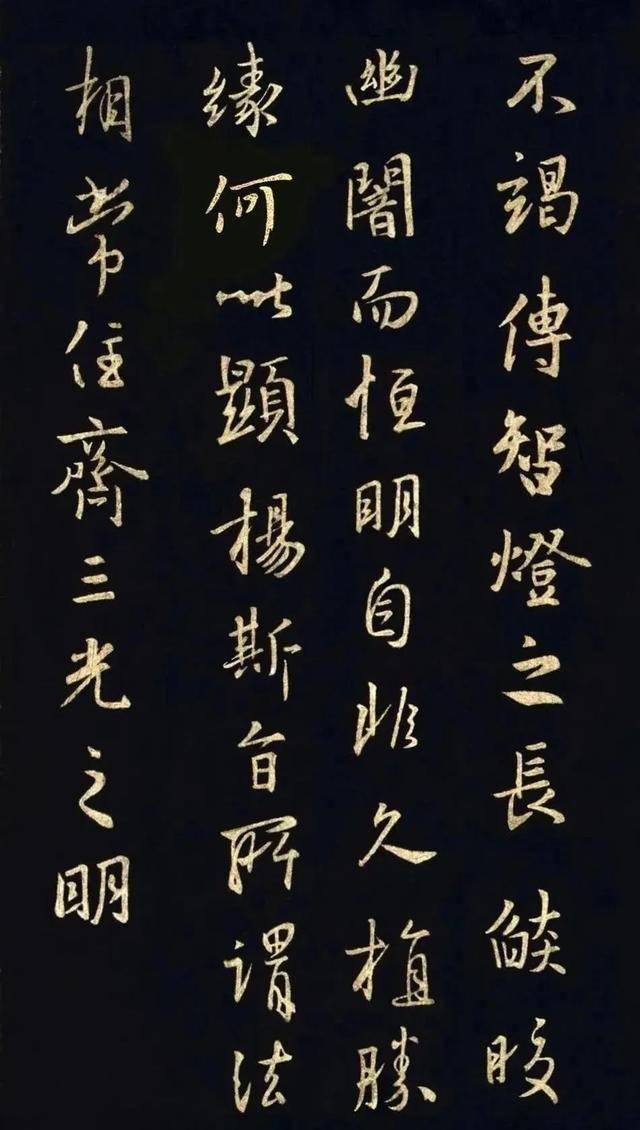 不竭傳智燈之長燄皎
幽闇而恒明自非久植勝
緣何以顯楊斯旨所謂法
相常住齊三光之明